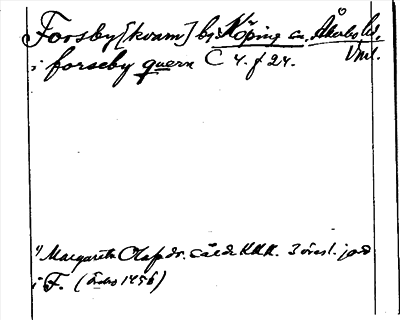 Forsby [kvarn] by Köping sn. Åkerbo hd.
Vml.
i forseby quern C 4. f 24.
1) Margareta Olafsdr. 3 öresl. jord
i F. (1456)